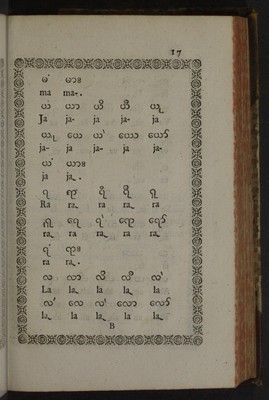 17
မံ မား
ma ma-.
ယ ယာ ယိ ယီ ယု
Ja ja- ja ja- ja
ယူ ယေ ယဲ ယော ယော်
ja- ja ja- ja ja-
ယံ ယား
ja ja-.
ရ ရာ ရိ ရီ ရု
Ra ra- ra ra- ra
ရူ ရေ ရဲ ရော ရော်
ra- ra ra- ra ra-
ရံ ရား
ra ra-.
လ လာ လိ လီ
La la- la la- la
လေ လဲ လော လော်
la- la la- la la-
B